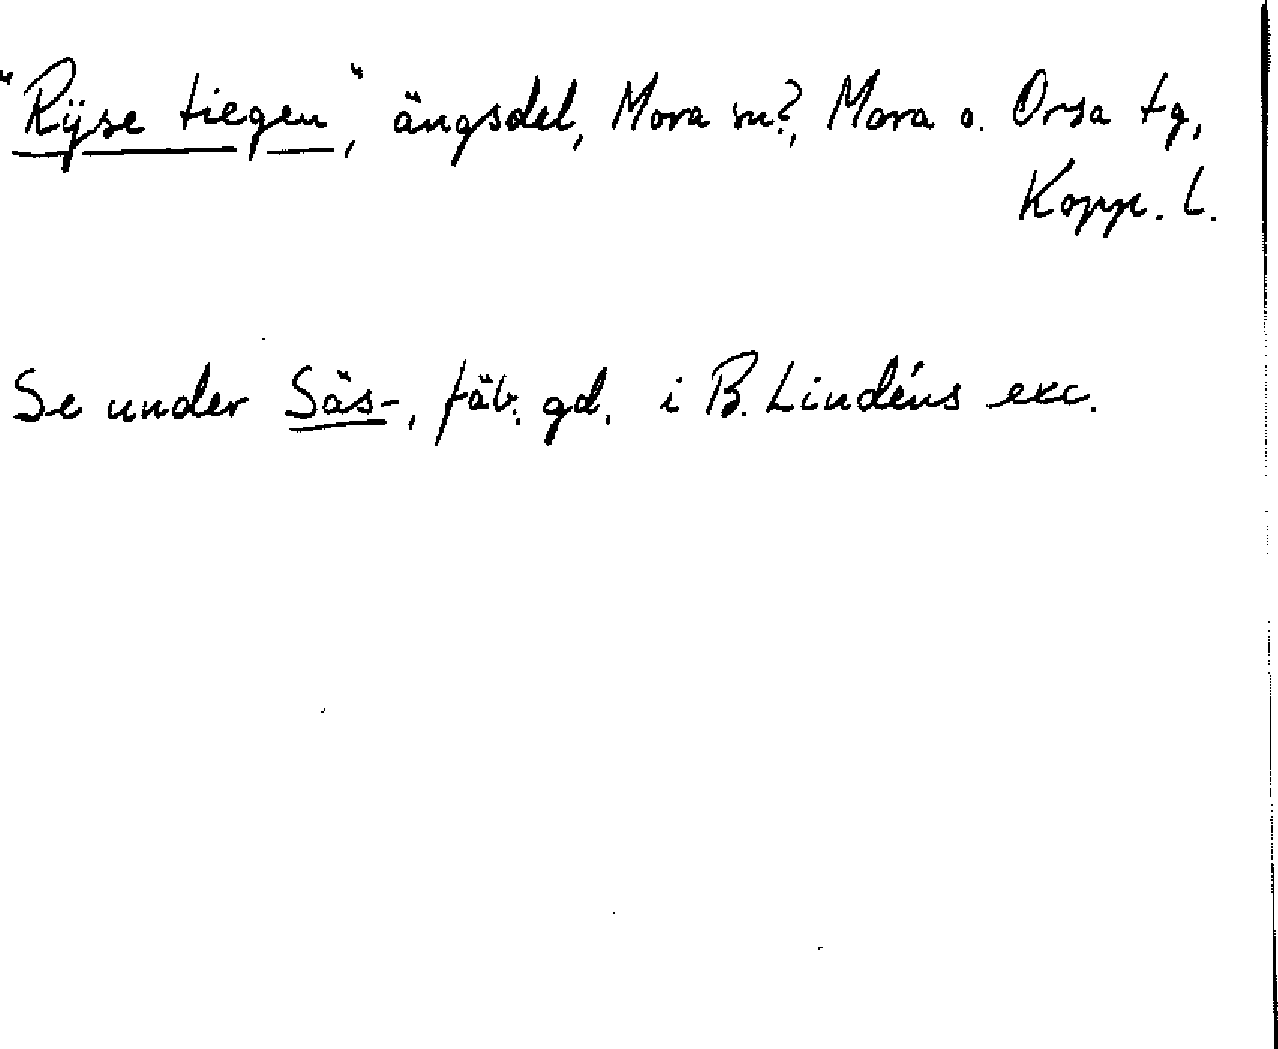 "Rÿse tiegen", ängsdel, Mora sn?, Mora o. Orsa tg,
Kopp. l.
Se under Säs-, fäb. gd. i B. Lindéns exc.